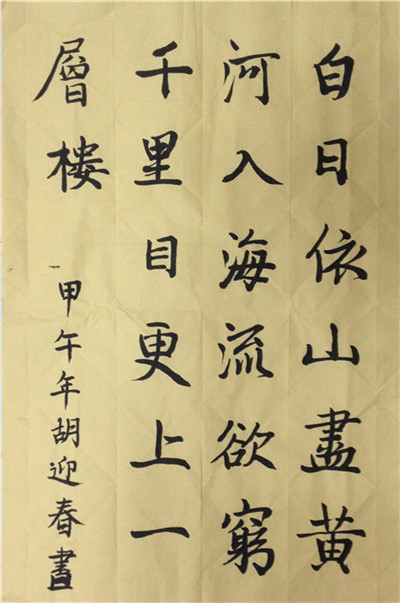 白日依山盡黄
河入海流欲窮
千里目更上一
層樓
甲午年胡迎春書